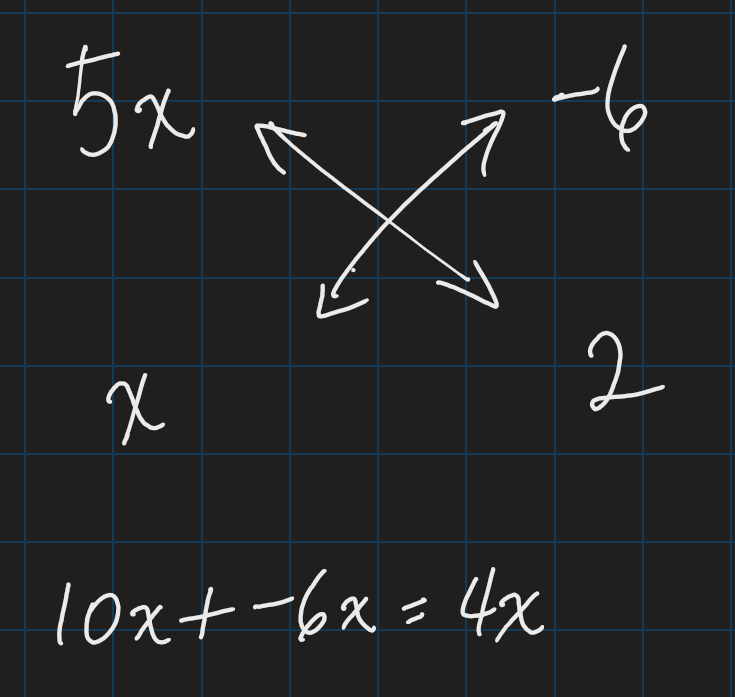 5x -6
x 2
10x + -6x = 4x